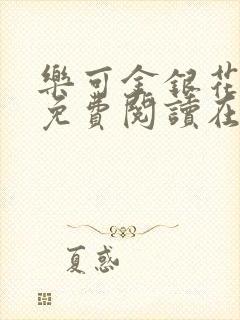 樂可金銀花
免費閱讀在
夏惑